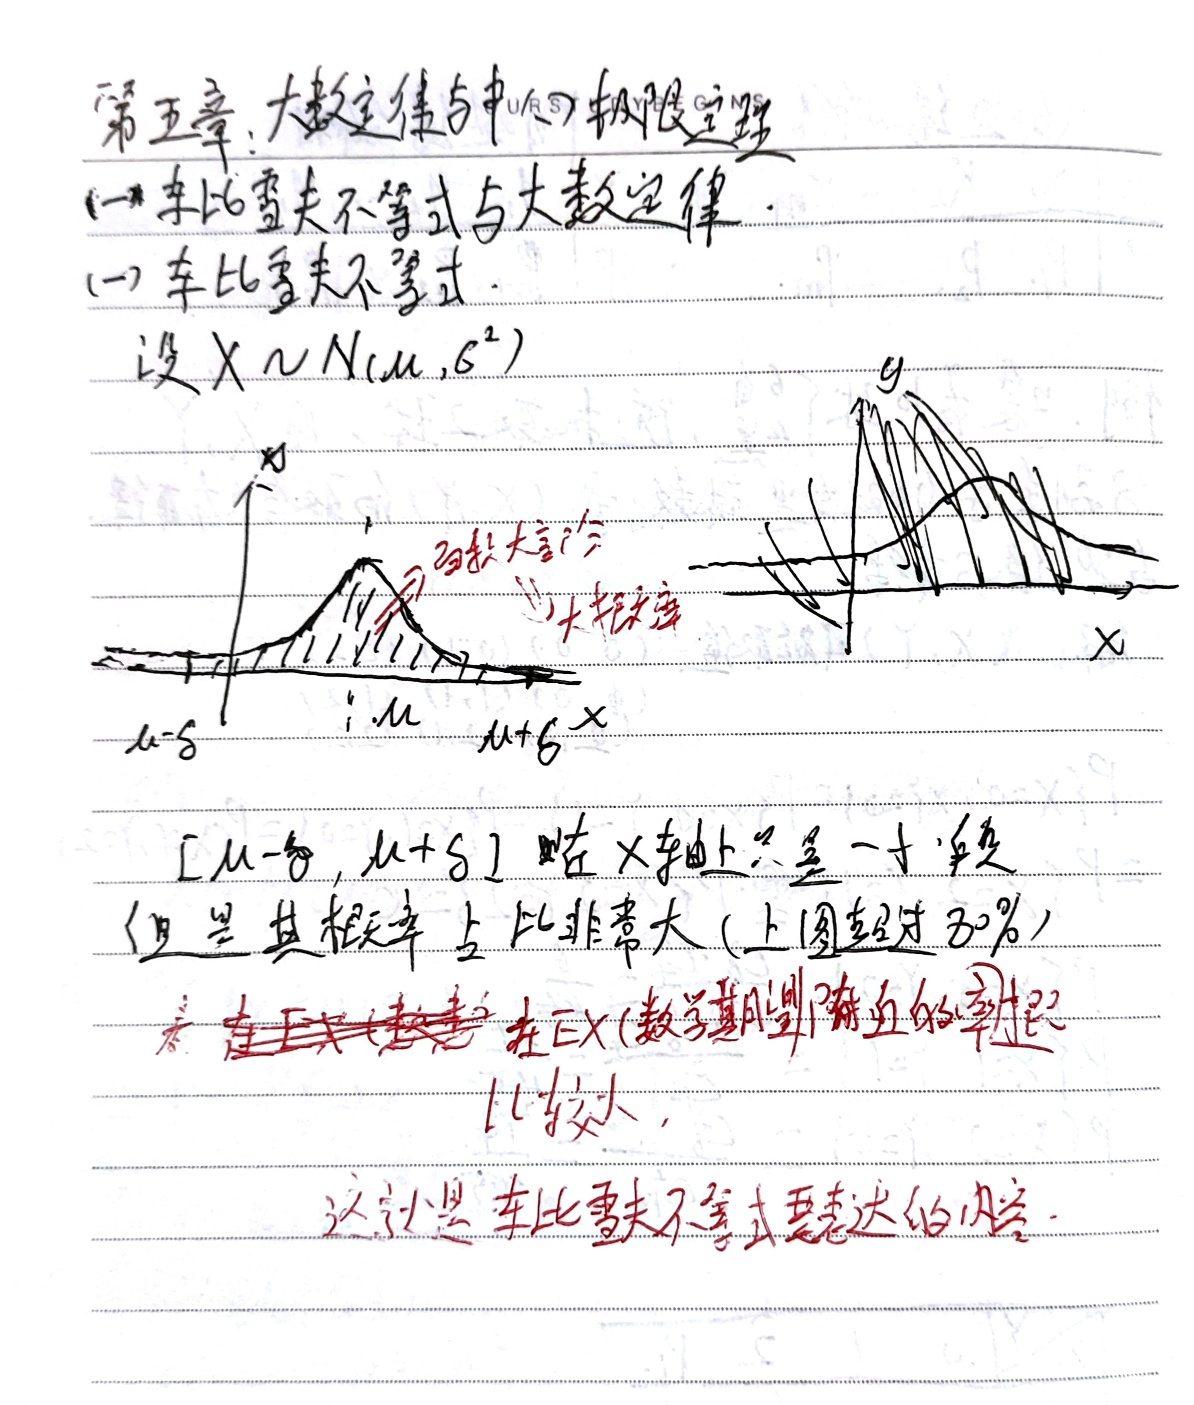 第五章:大数定律与中心极限定理
(一 车比雪夫不等式与大数定律.
(一) 车比雪夫不等式.
设 X ~ N(μ,σ²)
y
面积大部分
大概率
X
μ-δ
μ
μ+δ
x
[μ-δ, μ+δ] 在x轴上只是一小段
但是其概率占比非常大(上图超过80%)
在EX(数学期望)附近的概率
比较大,
这就是车比雪夫不等式要表达的内容.